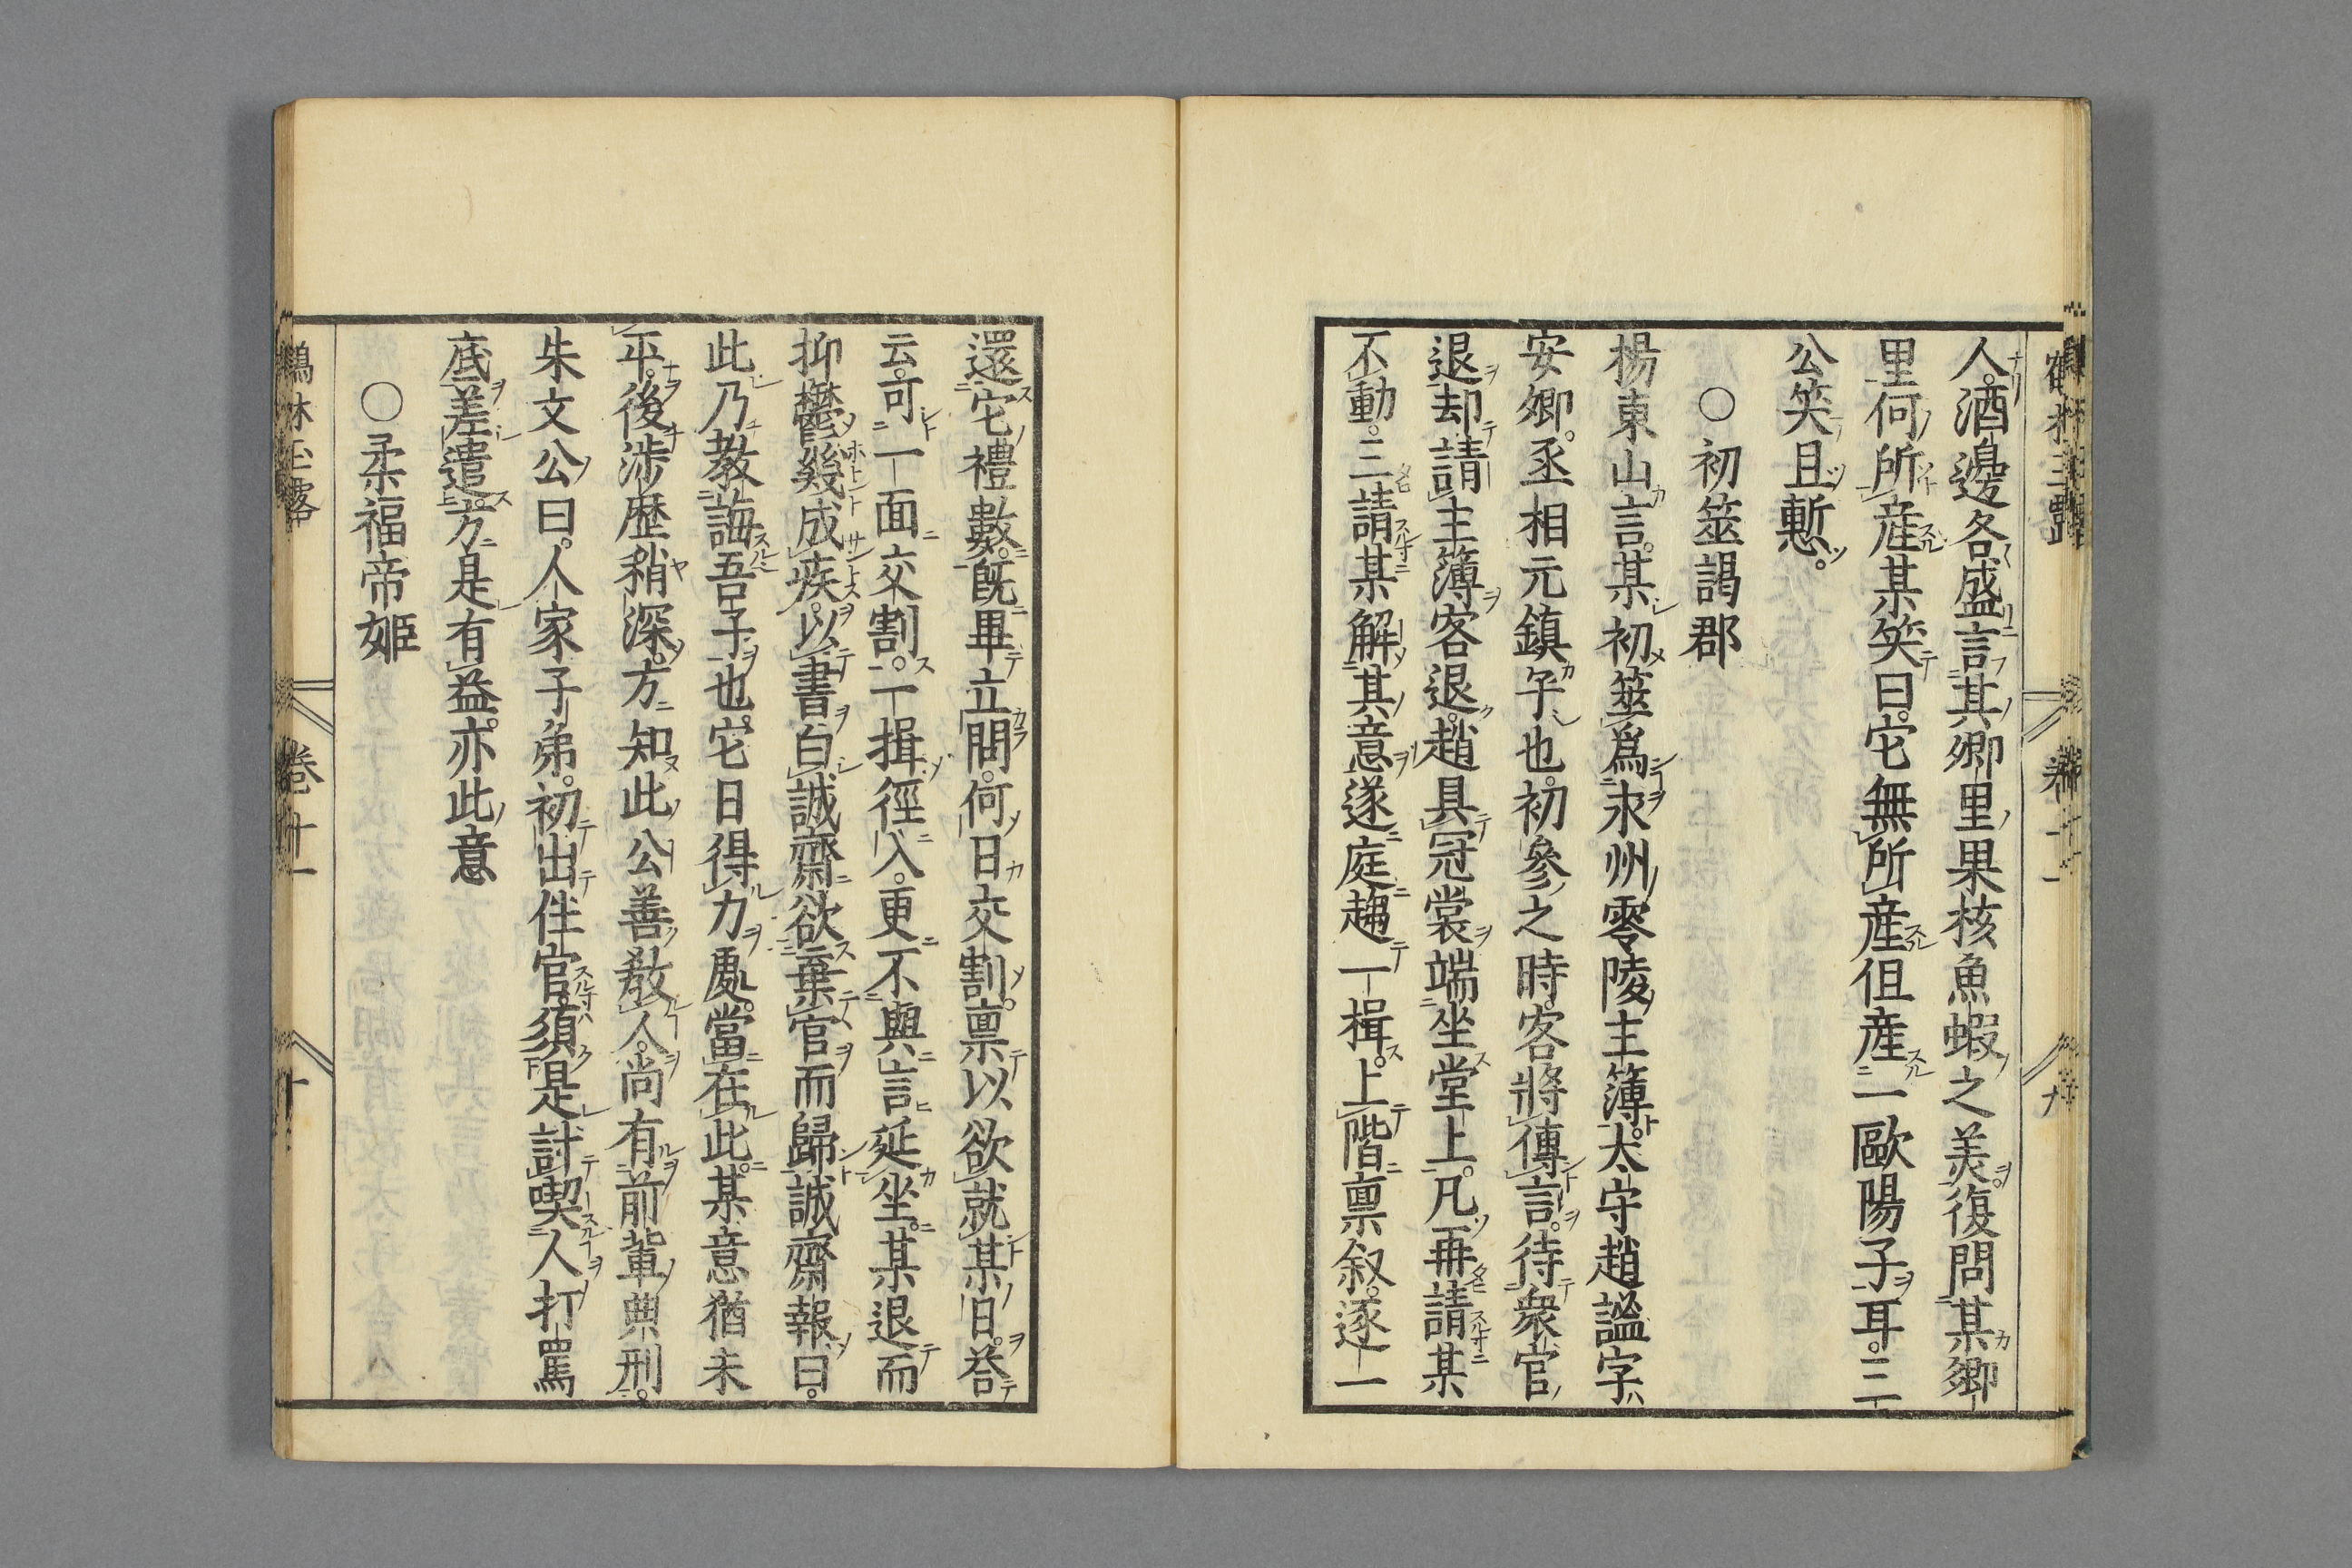 人酒邊各盛言其鄉里果核魚蝦之美復問某鄉
里何所産某笑曰它無所産但産一歐陽子耳三
公笑且慙
○初筮謁郡
楊東山言某初筮爲永州零陵主簿太守趙謐字
安卿丞相元鎮子也初參之時客將傳言待衆官
退却請主簿客退趙具冠裳端坐堂上凡再請某
不動三請某解其意遂庭趨一揖上階禀叙逐一
還它禮數既畢立問何日交割禀以欲就某日荅
云可一面交割一揖徑入更不與言延坐某退而
抑鬱幾成疾以書白誠齋欲棄官而歸誠齋報曰
此乃教誨吾子也它日得力處當在此某意猶未
平後涉歷稍深方知此公善教人尚有前輩典刑
朱文公曰人家子弟初出仕官須是討喫人打罵
底差遣方是有益亦此意
○柔福帝姬
鶴林玉露
卷十一
十